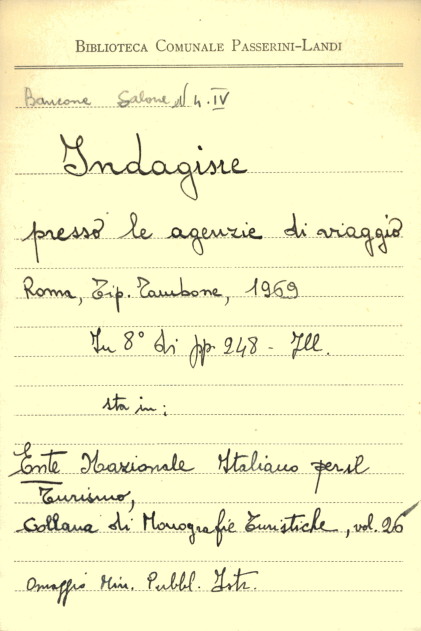 BIBLIOTECA COMUNALE PASSERINI-LANDI
Bancone Salone N 4. IV
Indagine
presso le agenzie di viaggio
Roma, Tip. Tambone, 1969
In 8° di pp. 248 - Ill.
sta in:
Ente Nazionale Italiano per il
Turismo,
Collana di Monografie Turistiche, vol. 26
Omaggio Min. Pubbl. Istr.